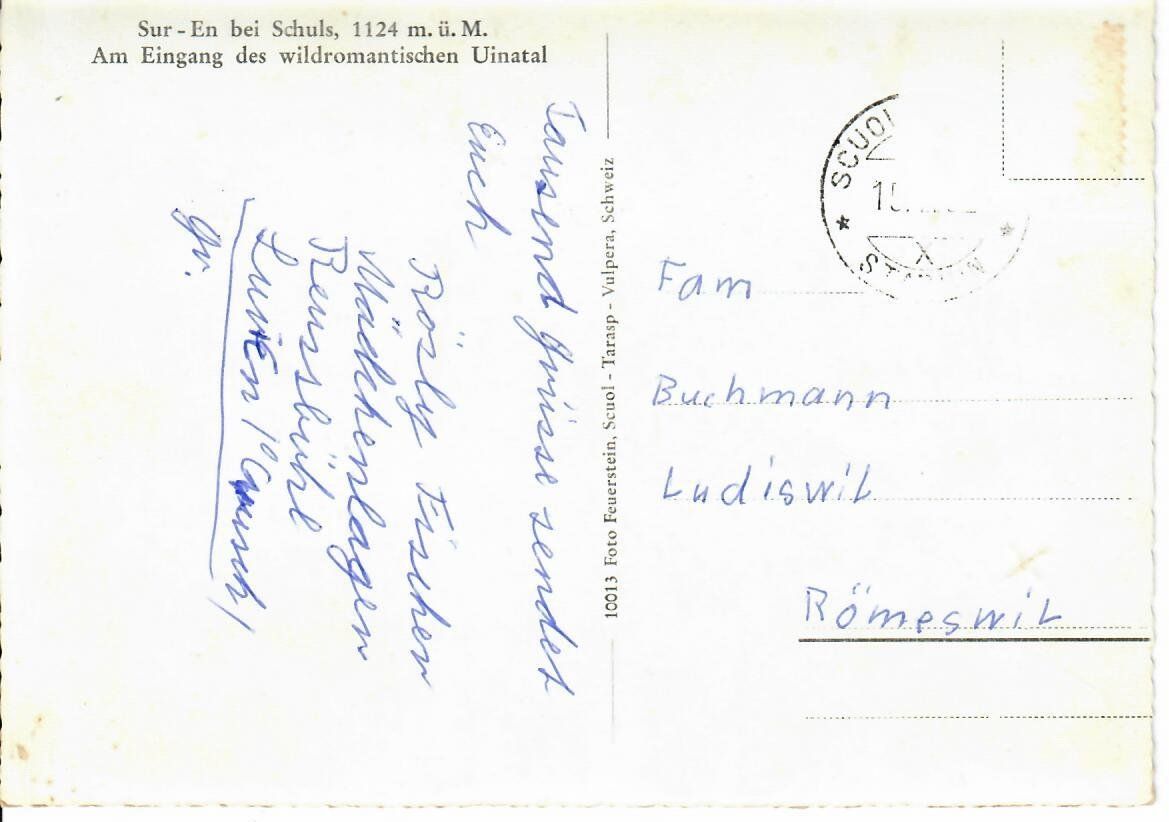 Sur - En bei Schuls, 1124 m. ü. M.
Am Eingang des wildromantischen Uinatal
Tausend Grüsse sendet
Euch
Rösly Fischer
Mädchenlager
Gr.
10013 Foto Feuerstein, Scuol - Tarasp - Vulpera, Schweiz
SCUOL
X
Fam
Buchmann
Ludiswil
Römeswil